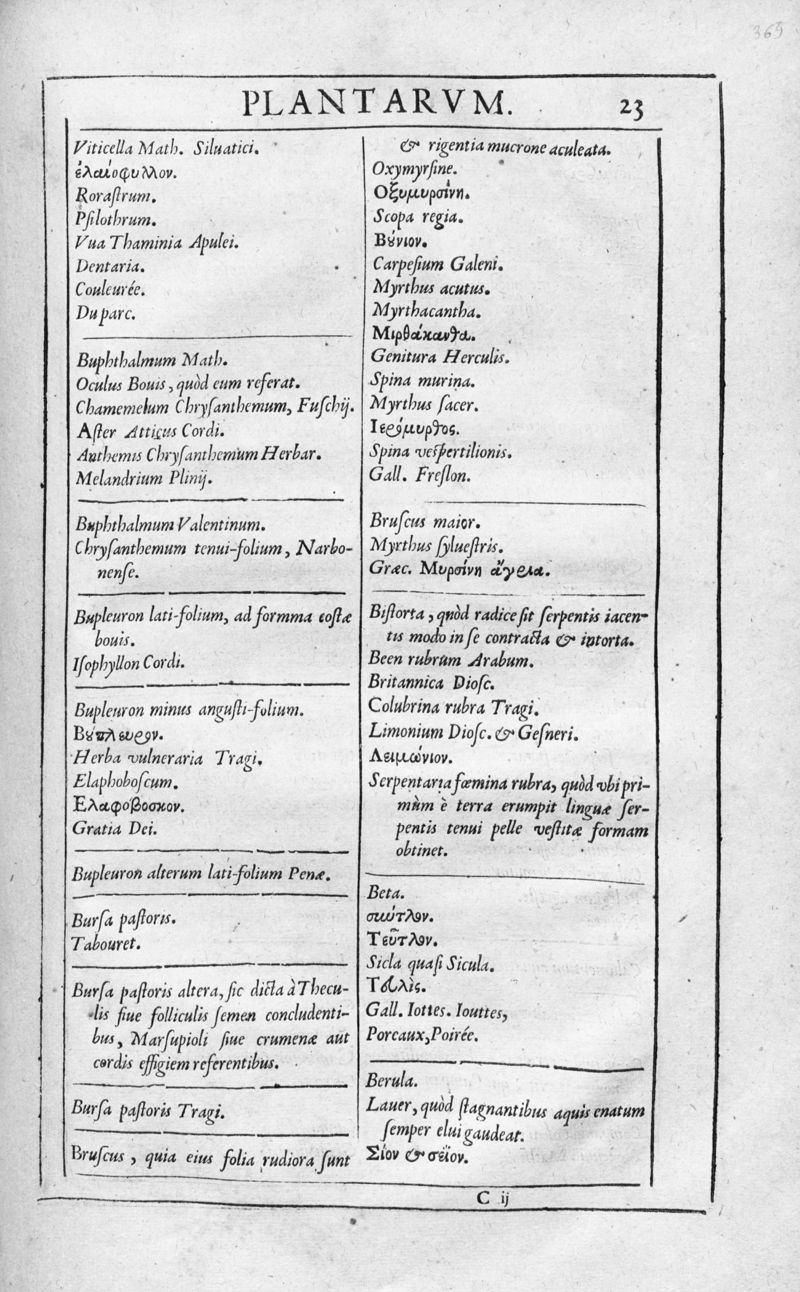 365
PLANTARVM. 23
Viticella Math. Siluatici.
ἐλαιόφυλλον.
Rorastrum.
Psilothrum.
Vua Thaminia Apulei.
Dentaria.
Couleurée.
Du parc.
Buphthalmum Math.
Oculus Bouis, quòd eum referat.
Chamemelum Chrysanthemum, Fuschij.
Aster Atticus Cordi.
Anthemis Chrysanthemum Herbar.
Melandrium Plinij.
Buphthalmum Valentinum.
Chrysanthemum tenui-folium, Narbo-
nense.
Bupleuron lati-folium, ad formma costæ
bouis.
Isophyllon Cordi.
Bupleuron minus angusti-folium.
Βούπλευρον.
Herba vulneraria Tragi.
Elaphoboscum.
Ελαφοβοσκον.
Gratia Dei.
Bupleuron alterum lati-folium Penæ.
Bursa pastoris.
Tabouret.
Bursa pastoris altera, sic dicta à Thecu-
lis siue folliculis semen concludenti-
bus, Marsupioli siue crumenæ aut
cordis effigiem referentibus.
Bursa pastoris Tragi.
Bruscus, quia eius folia rudiora sunt
& rigentia mucrone aculeata.
Oxymyrsine.
Οξυμυρσίνη.
Scopa regia.
Βούνιον.
Carpesium Galeni.
Myrthus acutus.
Myrthacantha.
Μιρθάκανθα.
Genitura Herculis.
Spina murina.
Myrthus sacer.
Ιερόμυρθος.
Spina vespertilionis.
Gall. Freslon.
Bruscus maior.
Myrthus syluestris.
Græc. Μυρσίνη ἄγρια.
Bistorta, quòd radice sit serpentis iacen-
tis modo in se contracta & intorta.
Been rubrum Arabum.
Britannica Diosc.
Colubrina rubra Tragi.
Limonium Diosc. & Gesneri.
Λειμώνιον.
Serpentaria fœmina rubra, quòd vbi pri-
mùm è terra erumpit linguæ ser-
pentis tenui pelle vestitæ formam
obtinet.
Beta.
σεύτλον.
Τεῦτλον.
Sicla quasi Sicula.
Gall. Iottes. Iouttes,
Porceaux, Poirée.
Berula.
Lauer, quòd stagnantibus aquis enatum
semper elui gaudeat.
Σίον & σεῖον.
C ij